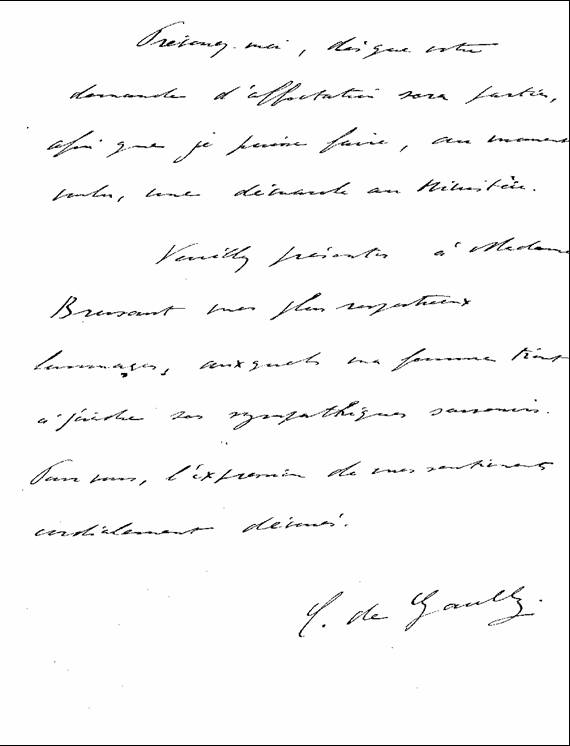 Prévenez-moi, dès que votre
demande d'affectation sera partie,
afin que je puisse faire, au moment
voulu, une démarche au Ministère.
Veuillez présenter à Madame
Bressant mes plus respectueux
hommages, auxquels ma femme tient
à joindre ses sympathiques souvenirs.
Pour vous, l'expression de mes sentiments
cordialement dévoués.
C. de Gaulle.